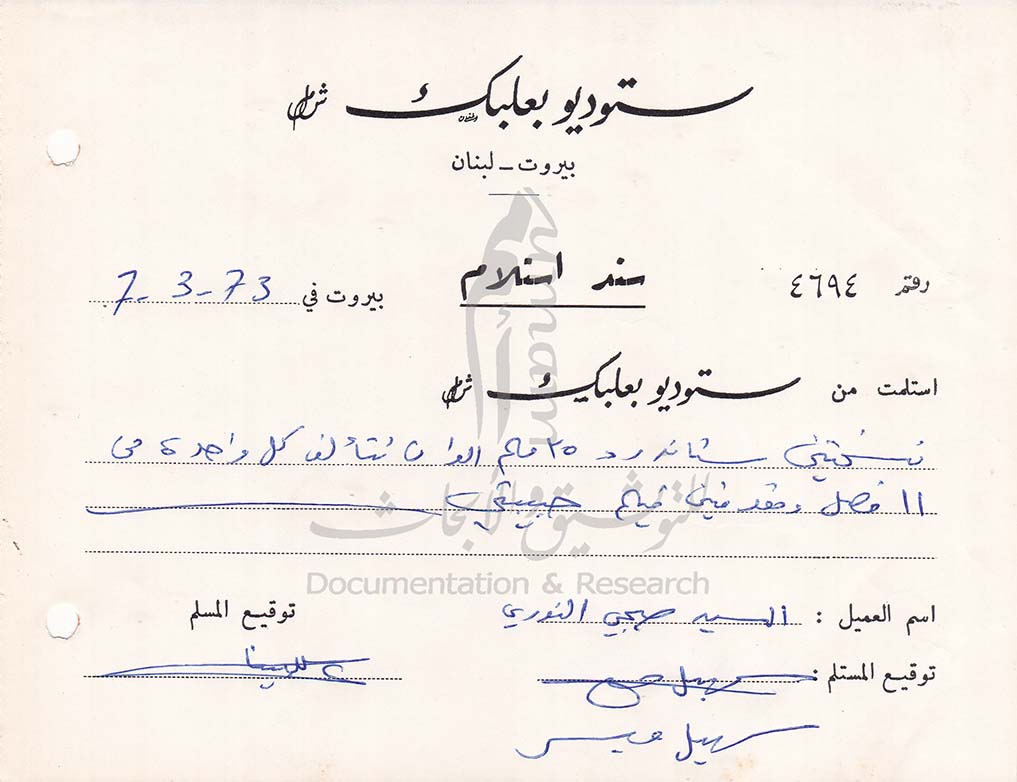 ستوديو بعلبك ش.م.ل
بيروت - لبنان
رقم ٤٦٩٤
سند استلام
بيروت في 7-3-73
استلمت من ستوديو بعلبك ش.م.ل
نسختين ستاندرد ٣٥ ملم الوان تتألف كل واحدة من
١١ فصل ومقدمتين فيلم حبيبتي
اسم العميل : السيد صبحي النوري
توقيع المسلم
توقيع المستلم :
سهيل
umam
للتوثيق والأبحاث
Documentation & Research